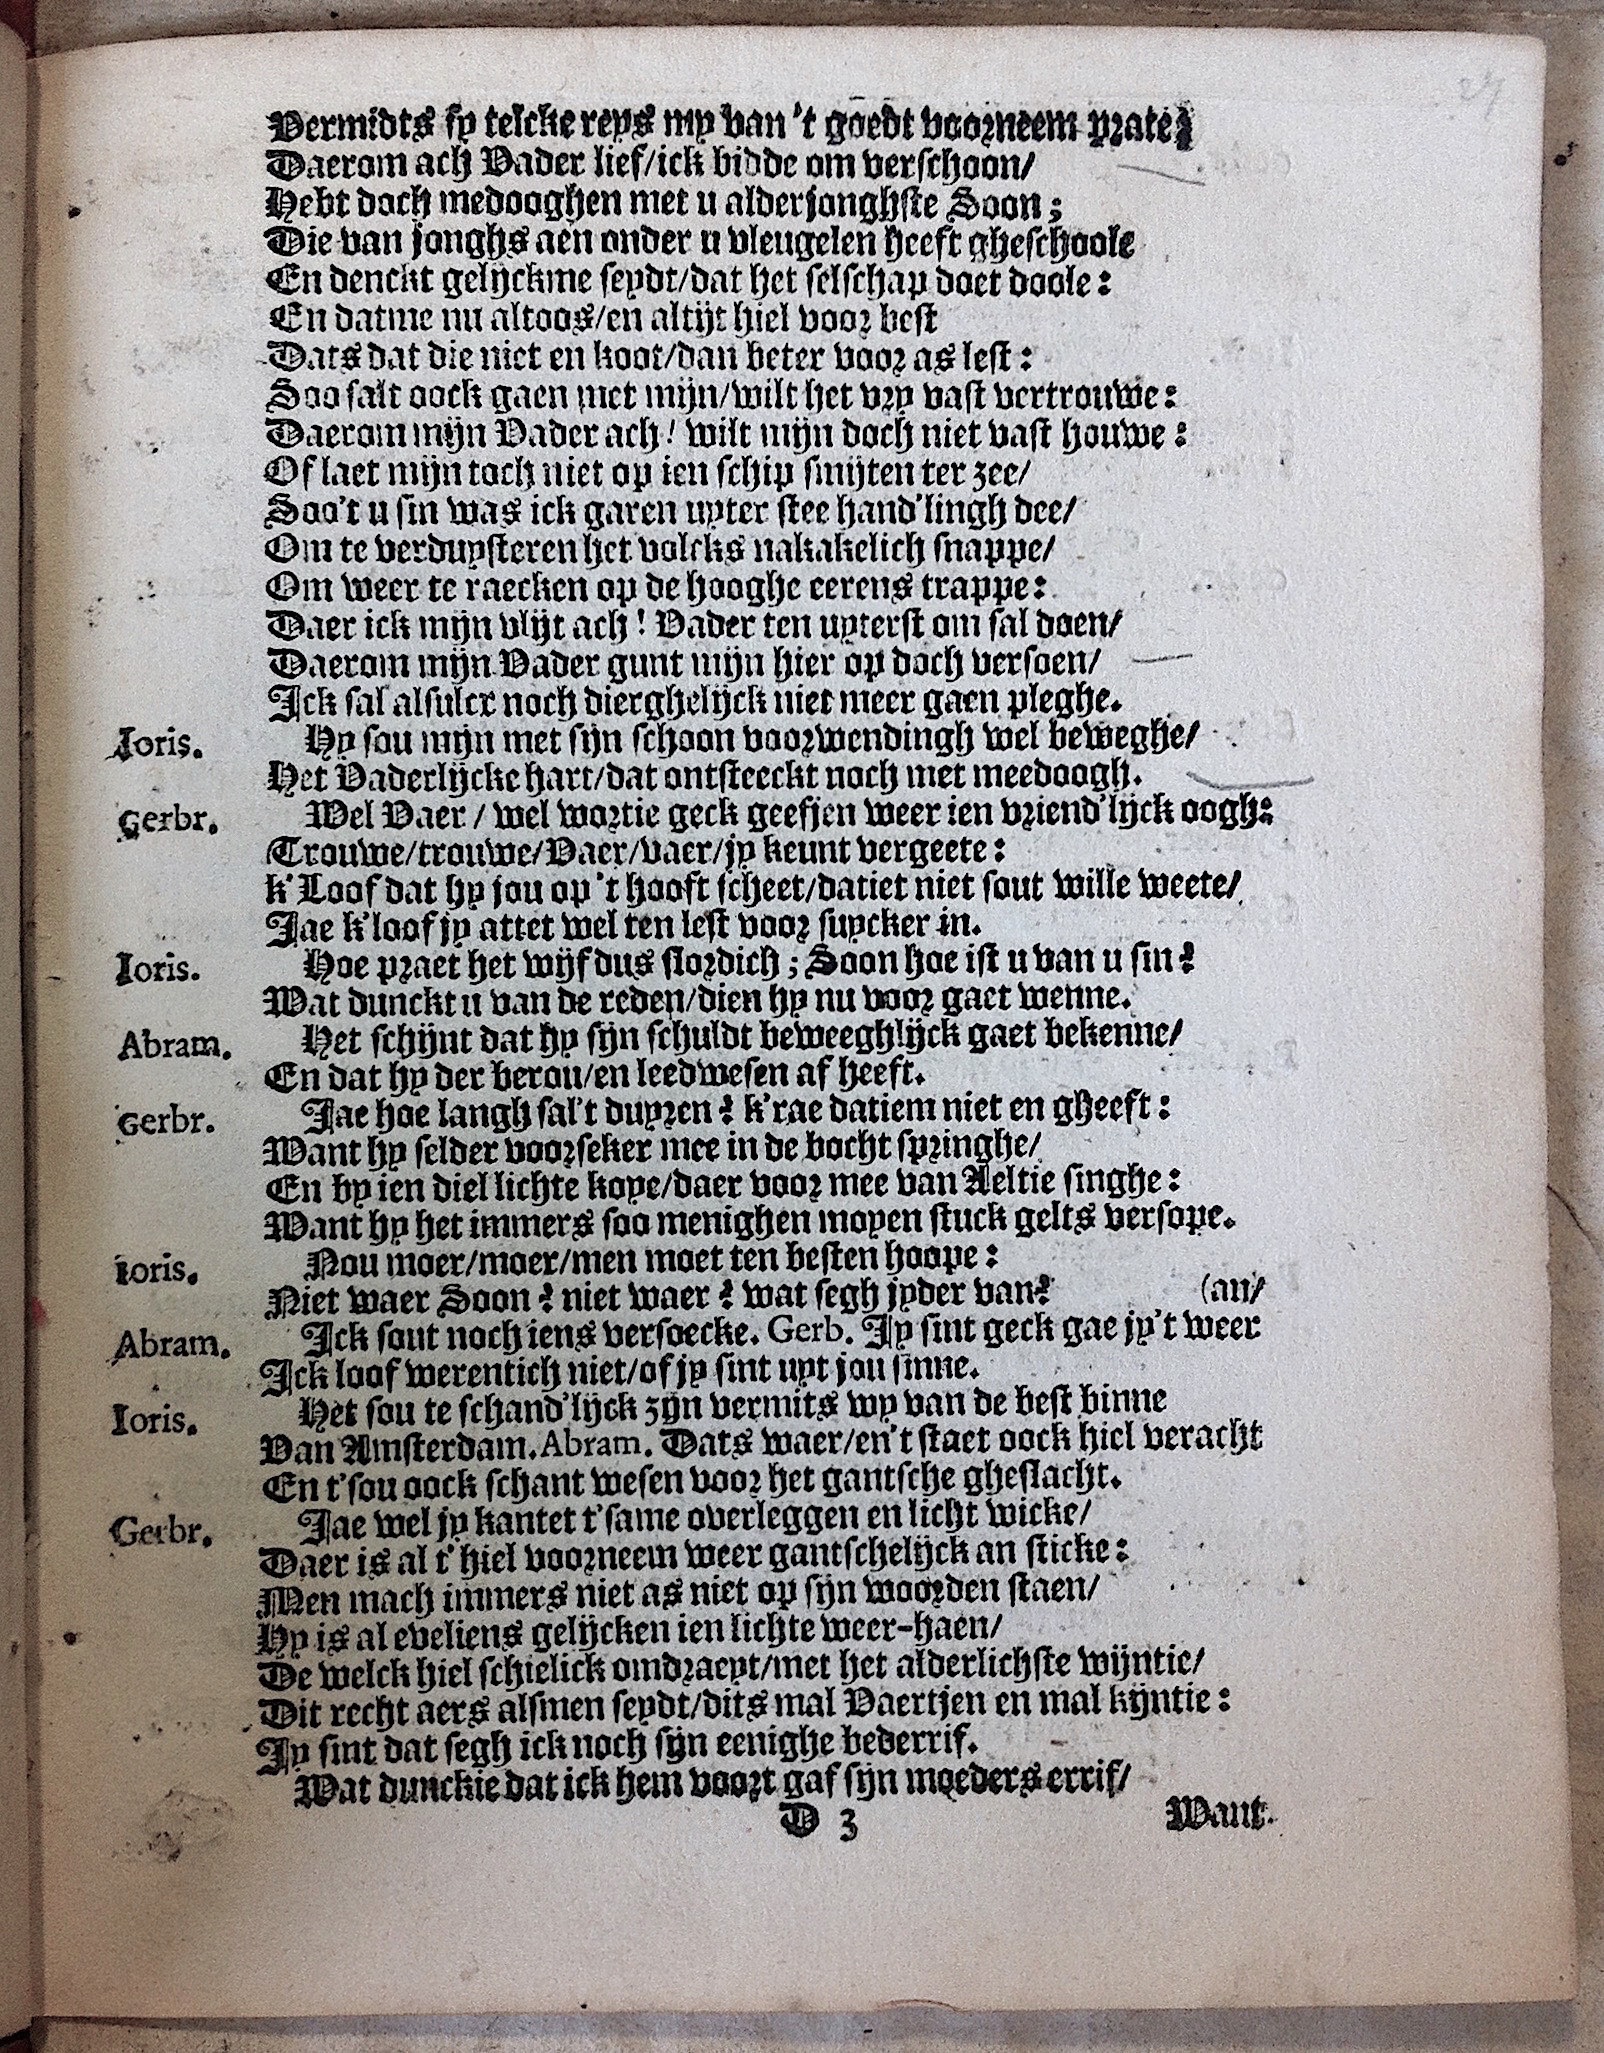 Vermidts sy telcke reys my van 't goedt voorneem prate;
Daerom ach Vader lief/ick bidde om verschoon/
Hebt doch medooghen met u alderjonghste Soon;
Die van jonghs aen onder u vleugelen heeft gheschoole
En denckt gelijckme seydt/dat het selschap doet doole:
En datme nu altoos/en altijt hiel voor best
Dats dat die niet en koot/dan beter voor as lest:
Soo salt oock gaen met mijn/wilt het vry vast vertrouwe:
Daerom mijn Vader ach! wilt mijn doch niet vast houwe:
Of laet mijn toch niet op ien schip smijten ter zee/
Soo't u sin was ick garen uyter stee hand'lingh dee/
Om te verduysteren het volcks nakakelich snappe/
Om weer te raecken op de hooghe eerens trappe:
Daer ick mijn vlijt ach! Vader ten uyterst om sal doen/
Daerom mijn Vader gunt mijn hier op doch versoen/
Ick sal alsulcx noch dierghelijck niet meer gaen pleghe.
Ioris. Hy sou mijn met sijn schoon voorwendingh wel beweghe/
Het Vaderlijcke hart/dat ontsteeckt noch met meedoogh.
Gerbr. Wel Vaer / wel wortie geck geefjen weer ien vriend'lijck oogh:
Trouwe/trouwe/Vaer/vaer/jy keunt vergeete:
k'Loof dat hy jou op 't hooft scheet/datiet niet sout wille weete/
Jae k'loof jy attet wel ten lest voor suycker in.
Ioris. Hoe praet het wijf dus slordich; Soon hoe ist u van u sin?
Wat dunckt u van de reden/dien hy nu voor gaet wenne.
Abram. Het schijnt dat hy sijn schuldt beweeghlijck gaet bekenne/
En dat hy der berou/en leedwesen af heeft.
Gerbr. Jae hoe langh sal't duyren? k'rae datiem niet en gheeft:
Want hy selder voorseker mee in de bocht springhe/
En by ien diel lichte koye/daer voor mee van Aeltie singhe:
Want hy het immers soo menighen moyen stuck gelts versope.
Ioris. Nou moer/moer/men moet ten besten hoope:
Niet waer Soon? niet waer? wat segh jyder van? (an/
Abram. Ick sout noch iens versoecke. Gerb. Jy sint geck gae jy't weer
Ick loof werentich niet/of jy sint uyt jou sinne.
Ioris. Het sou te schand'lijck zijn vermits wy van de best binne
Van Amsterdam. Abram. Dats waer/en't staet oock hiel veracht
En t'sou oock schant wesen voor het gantsche gheslacht.
Gerbr. Jae wel jy kantet t'same overleggen en licht wicke/
Daer is al t'hiel voorneem weer gantschelijck an sticke:
Men mach immers niet as niet op sijn woorden staen/
Hy is al eveliens gelijcken ien lichte weer-haen/
De welck hiel schielick omdraeyt/met het alderlichste wijntie/
Dit recht aers alsmen seydt/dits mal Vaertjen en mal kijntie:
Jy sint dat segh ick noch sijn eenighe bederrif.
Wat dunckie dat ick hem voort gaf sijn moeders errif/
D 3
Want